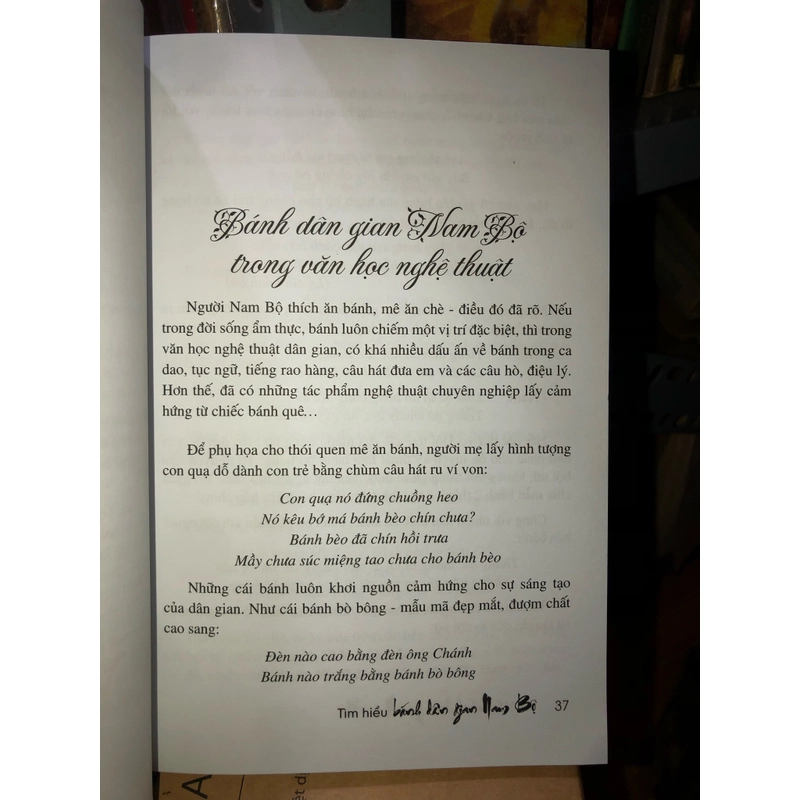 Bánh dân gian Nam Bộ
trong văn học nghệ thuật
Người Nam Bộ thích ăn bánh, mê ăn chè - điều đó đã rõ. Nếu
trong đời sống ẩm thực, bánh luôn chiếm một vị trí đặc biệt, thì trong
văn học nghệ thuật dân gian, có khá nhiều dấu ấn về bánh trong ca
dao, tục ngữ, tiếng rao hàng, câu hát đưa em và các câu hò, điệu lý.
Hơn thế, đã có những tác phẩm nghệ thuật chuyên nghiệp lấy cảm
hứng từ chiếc bánh quê…
Để phụ họa cho thói quen mê ăn bánh, người mẹ lấy hình tượng
con quạ dỗ dành con trẻ bằng chùm câu hát ru ví von:
Con quạ nó đứng chuồng heo
Nó kêu bớ má bánh bèo chín chưa?
Bánh bèo đã chín hồi trưa
Mầy chưa súc miệng tao chưa cho bánh bèo
Những cái bánh luôn khơi nguồn cảm hứng cho sự sáng tạo
của dân gian. Như cái bánh bò bông - mẫu mã đẹp mắt, đượm chất
cao sang:
Đèn nào cao bằng đèn ông Chánh
Bánh nào trắng bằng bánh bò bông
Tìm hiểu bánh dân gian Nam Bộ 37